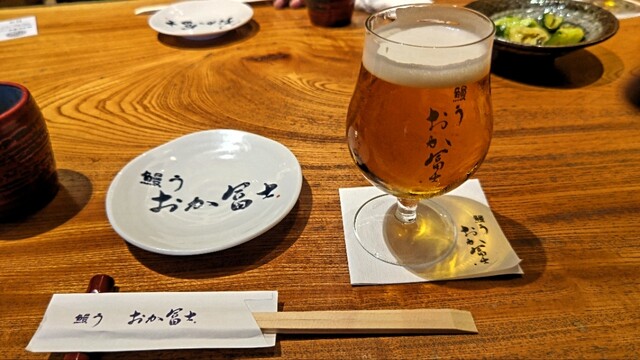 鰻う
おか冨士
鰻う
おか冨士
鰻う
おか冨士
鰻う おか冨士